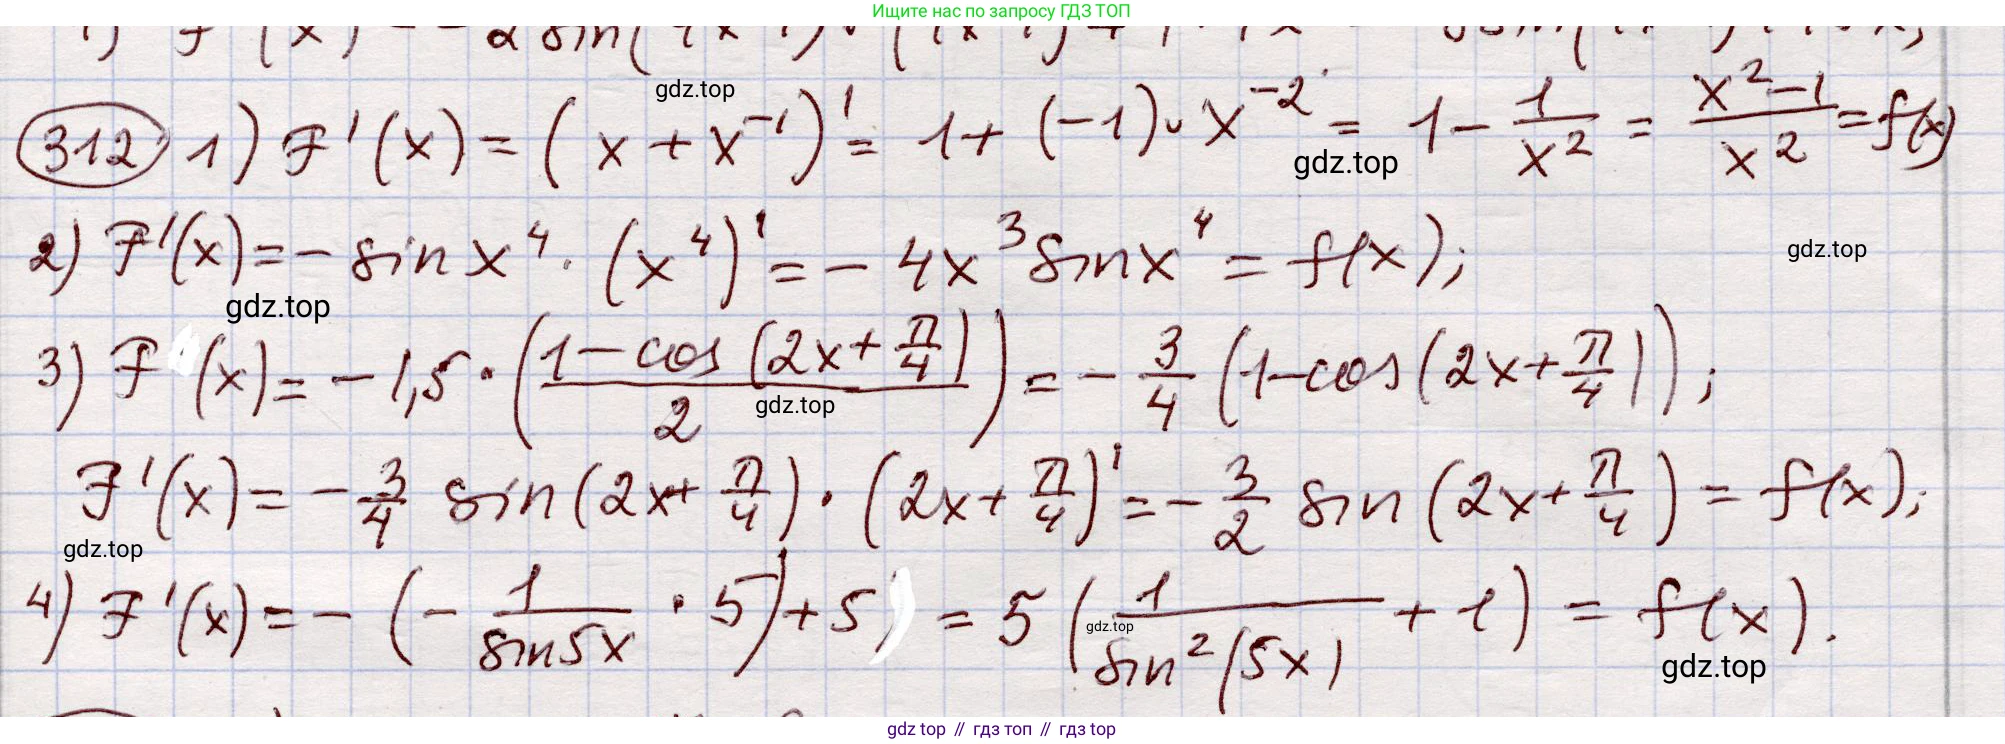 Ищите нас по запросу ГДЗ ТОП
gdz.top
312 1) F'(x) = (x + x⁻¹)' = 1 + (-1) · x⁻² = 1 - 1/x² = (x² - 1)/x² = f(x)
gdz.top
2) F'(x) = - sin x⁴ · (x⁴)' = - 4x³ sin x⁴ = f(x);
gdz.top
gdz.top
3) F (x) = - 1,5 · ((1 - cos (2x + π/4))/2) = - 3/4 (1 - cos (2x + π/4));
gdz.top
F'(x) = - 3/4 sin (2x + π/4) · (2x + π/4)' = - 3/2 sin (2x + π/4) = f(x);
gdz.top
4) F'(x) = - (- 1/sin5x · 5) + 5 = 5 (1/sin²(5x) + 1) = f(x).
gdz.top
gdz.top
gdz top // гдз топ // gdz top